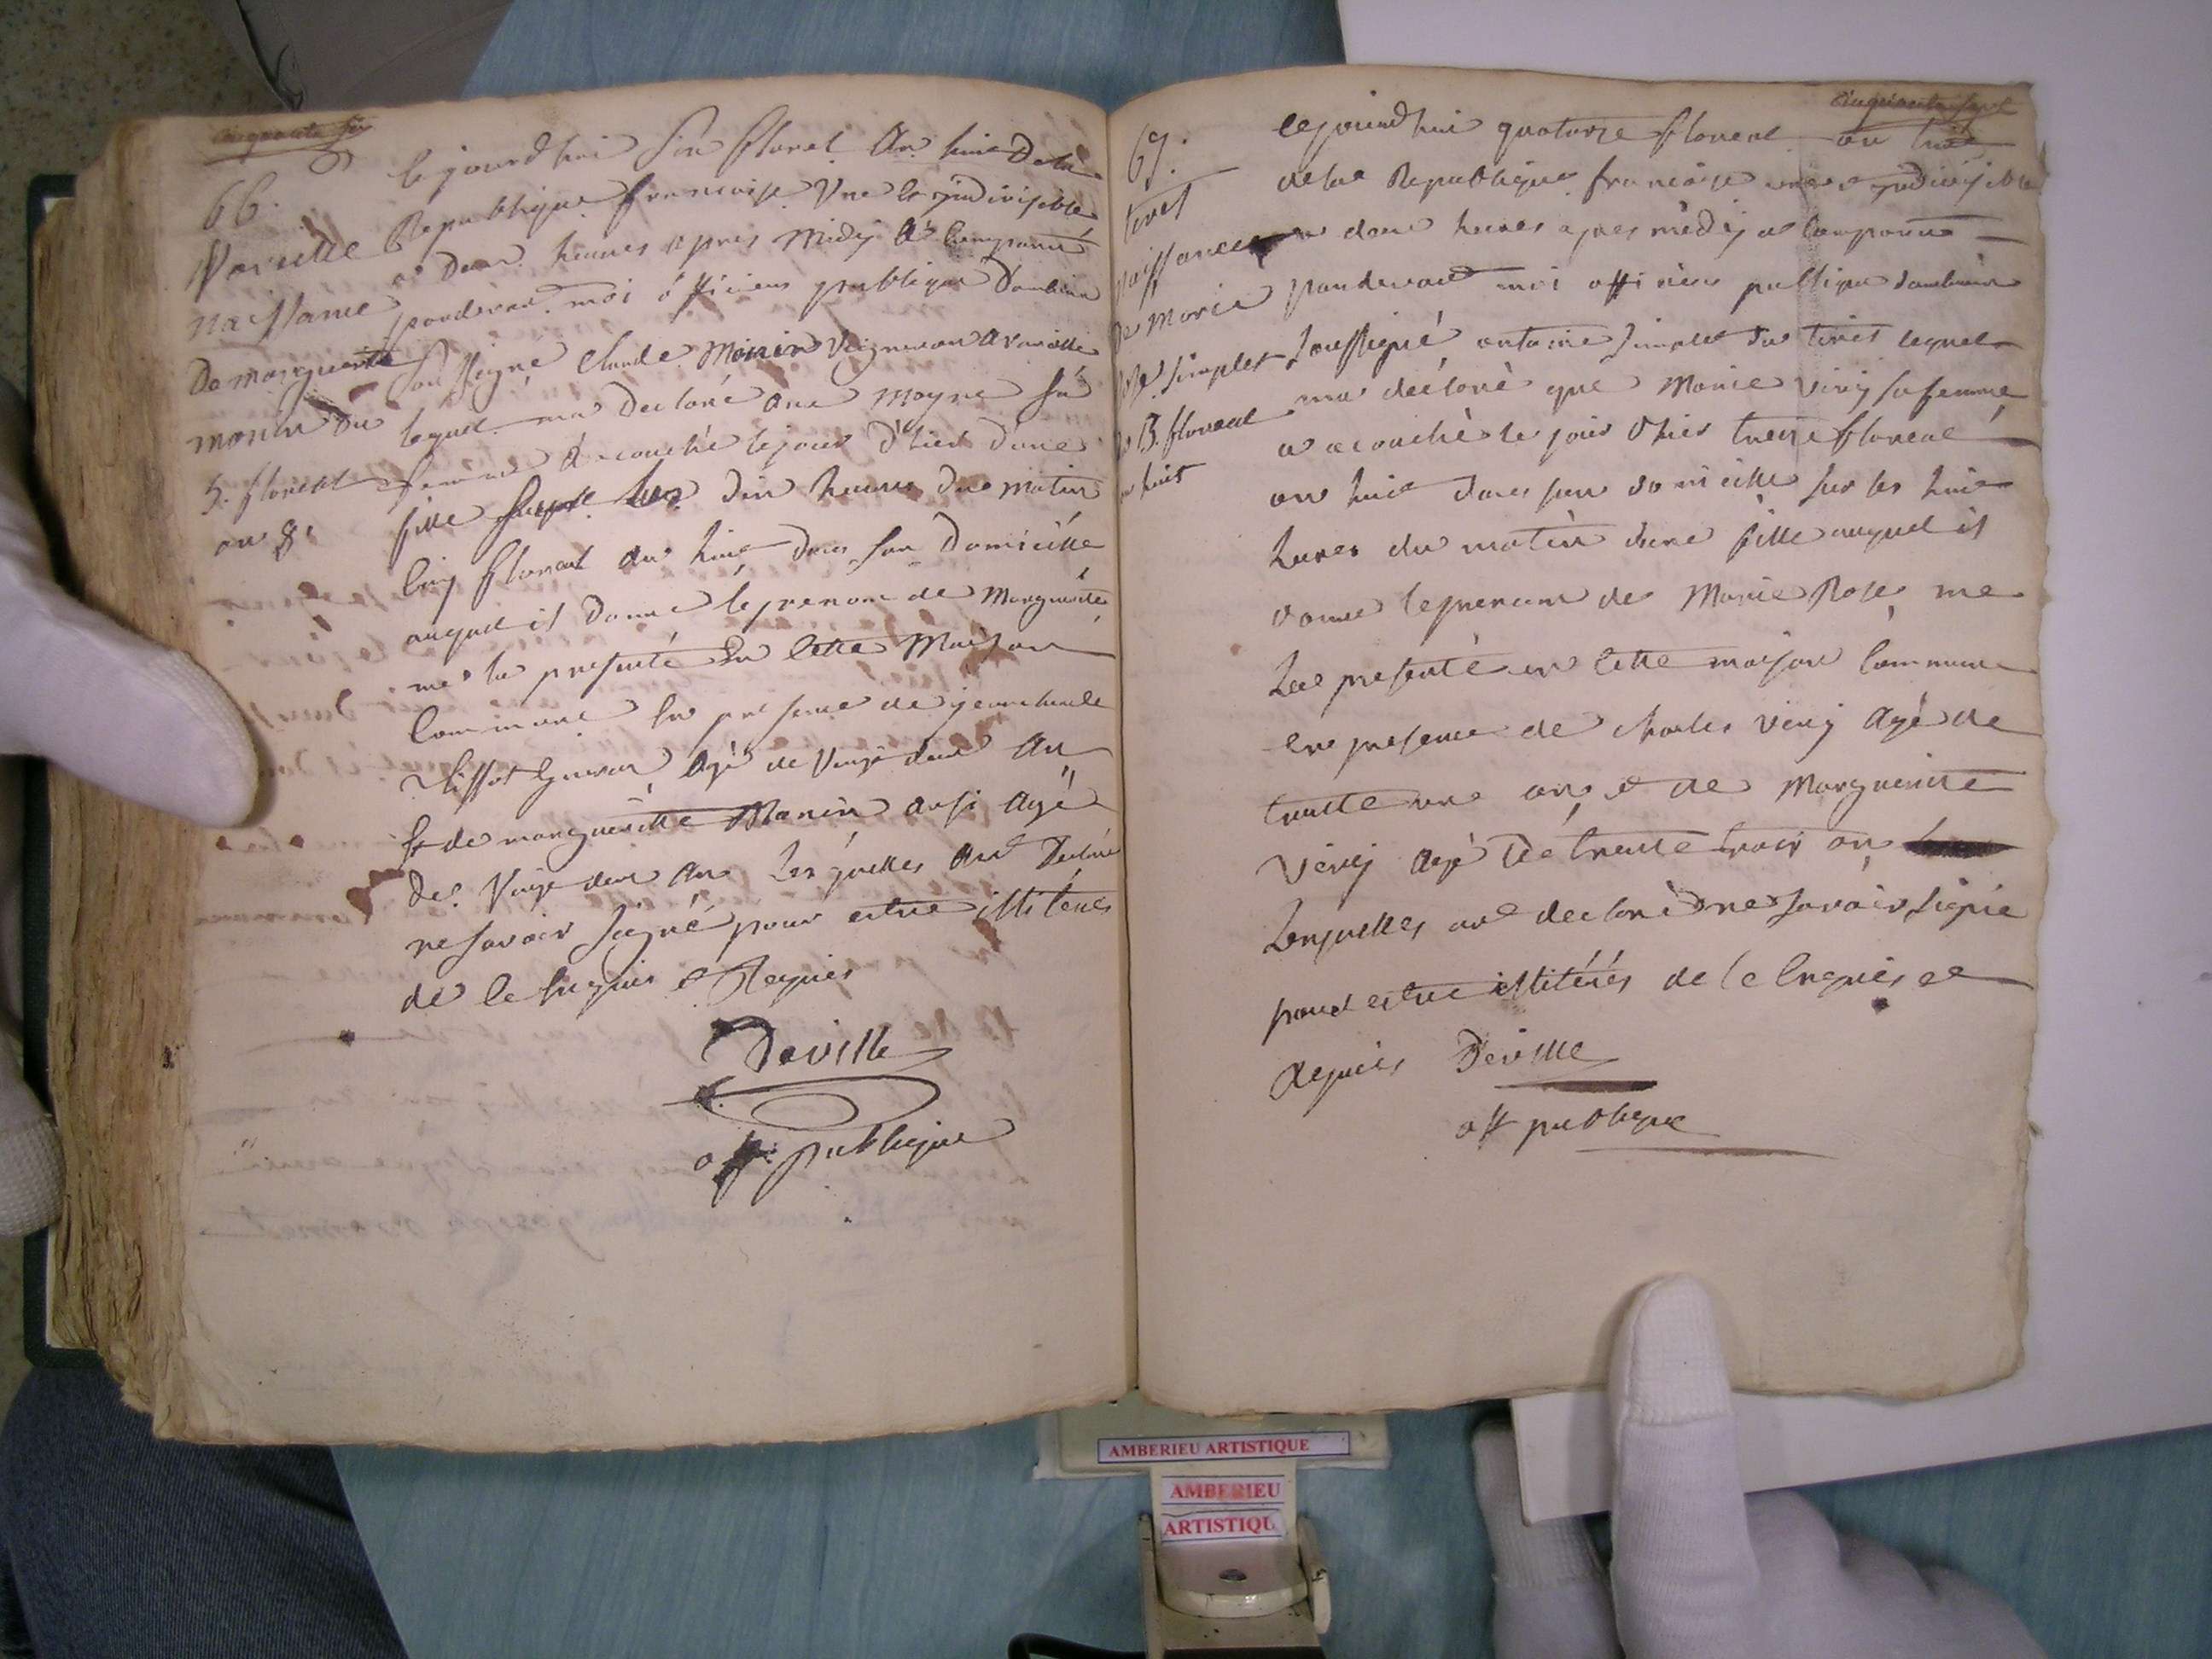 cinquante six
66.
Vareille
naissance
De marguerite
monin du
5. floreal
an 8.
Cejourdhui six floreal An huit De la
Republique francaise Une et Indivisible
a Deux heures apres Midy A Comparue
pardevant moi officiers publique Dambérieu
sousigné Claude Monin Vigneron a vareille
lequel ma Declaré que sa
femme A acouché le jour d'hier d'une
fille dix heures du matin
Cinq floreal An huit dans son Domicille
auquel il Donne le prenom de Marguerite
me la presenté En Cette Maison
Commune En presence de jean claude
Tissot age de Vingt deux An
Et de margueritte Monin ausi Agé
De Vingt deux An Lesquelles Ont Declaré
ne savoir signé pour estre illiteres
de ce Enquis et Requis
Deville
off publique
cinquante sept
67.
tiret
naissance
de Marie
Rose simplet
du 13. floreal
an huit
Cejourdhui quatorze floreal an huit
de la Republique francaise une et indivisible
a deux heures apres midy a Comparue
Pardevant moi officier publique dambérieu
Soussigné antoine Simplet du tiret lequel
ma déclaré que Marie Viny sa femme
a acouché le jour d'hier treize floreal
an huit dans son domicille sur les huit
heures du matin dune fille auquel il
donne le prenom de Marie Rose, me
La presenté en Cette maison Commune
en presence de charles viny Agé de
trentte un ans et de Margueritte
viny Agé De trentte trois an
Lesquelles ont declaré ne savoir signie
pour estre illitérés de ce Enquis et
Requis Deville
off publique
AMBERIEU ARTISTIQUE
AMBERIEU
ARTISTIQU